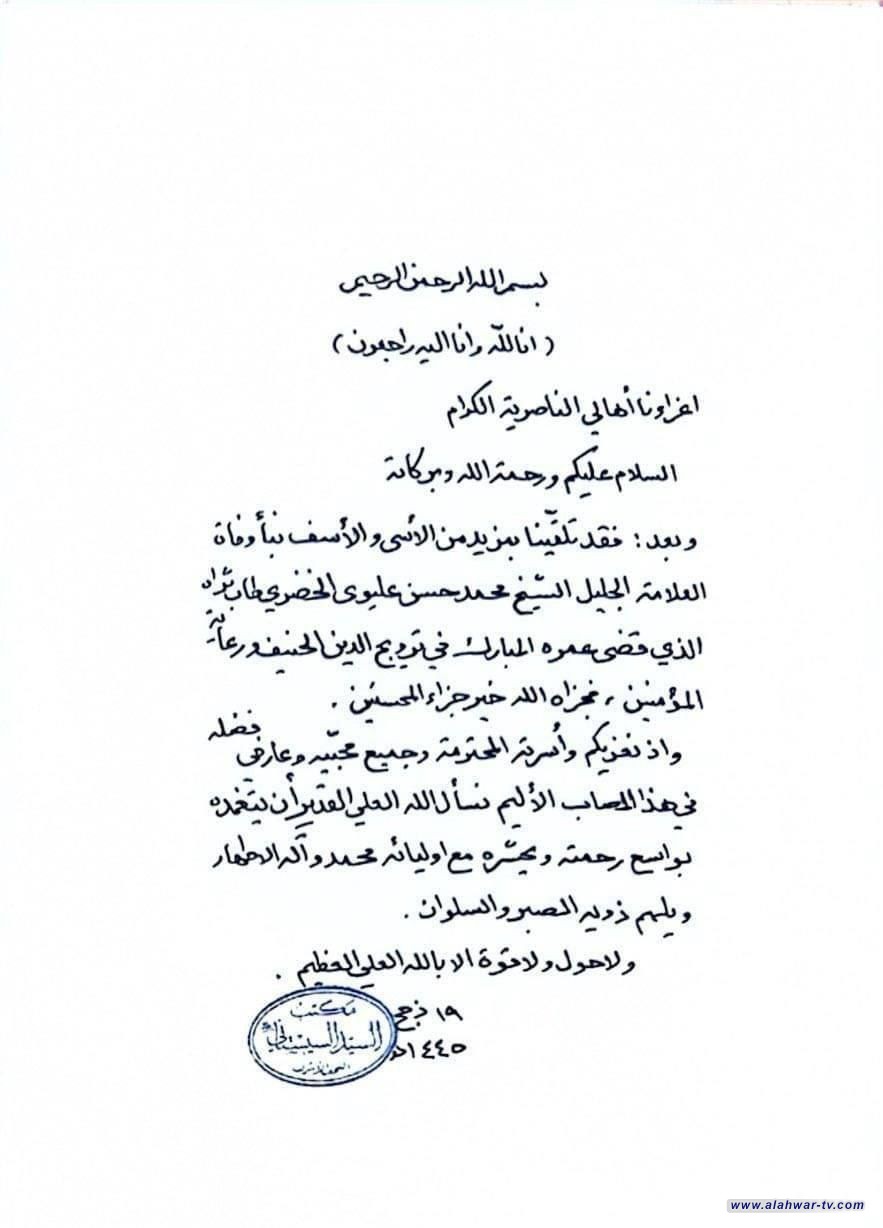 بسم الله الرحمن الرحيم
(انا لله وانا اليه راجعون)
اعزاءنا أهالي الناصرية الكرام
السلام عليكم ورحمة الله وبركاته
وبعد: فقد تلقّينا بمزيد من الأسى والأسف نبأ وفاة
العلامة الجليل الشيخ محمد حسن عليوي الخضري طاب ثراه
الذي قضى عمره المبارك في ترويج الدين الحنيف ورعاية
المؤمنين، فجزاه الله خير جزاء المحسنين.
واذ نعزيكم وأسرته المحترمة وجميع محبّيه وعارفي فضله
في هذا المصاب الأليم نسأل الله العلي القدير أن يتغمده
بواسع رحمته ويحشره مع اوليائه محمد وآله الاطهار
ويلهم ذويه الصبر والسلوان.
ولا حول ولا قوة الا بالله العلي العظيم.
١٩ ذ حج
١٤٤٥هـ
مكتب
السيد السيستاني
النجف الأشرف
www.alahwar-tv.com